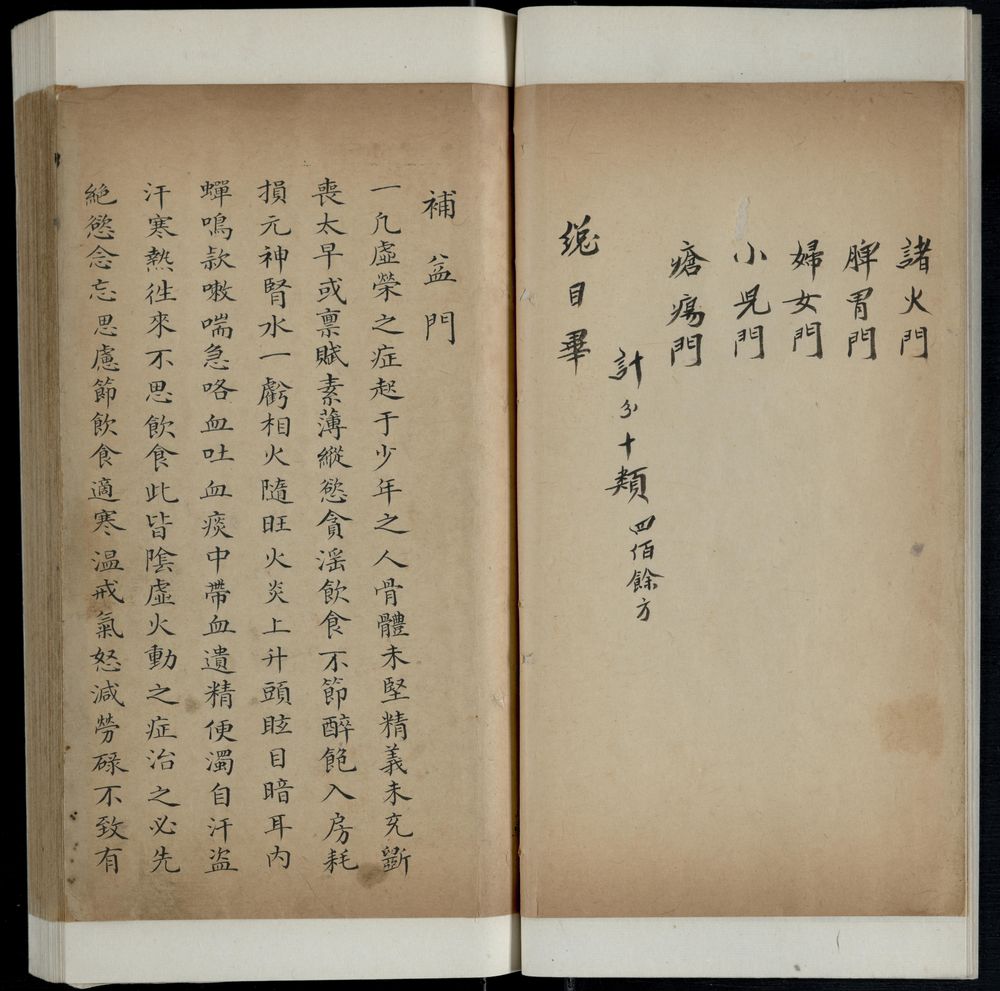 諸火門
脾胃門
婦女門
小児門
瘡瘍門
計分十類 四佰餘方
總目畢
補益門
一凡虛榮之症起于少年之人骨體未堅精義未充斵
喪太早或禀賦素薄縱慾貪淫飲食不節醉飽入房耗
損元神腎水一虧相火隨旺火炎上升頭眩目暗耳內
蟬鳴欬嗽喘急咯血吐血痰中帶血遺精便濁自汗盜
汗寒熱徃來不思飲食此皆陰虛火動之症治之必先
絶慾念忘思慮節飲食適寒温戒氣怒減勞碌不致有